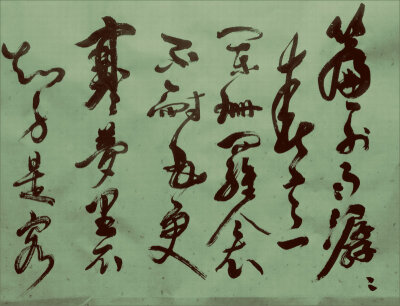 簾外雨潺〻
春意
闌珊羅衾
不耐五更
寒夢里不
知身是客